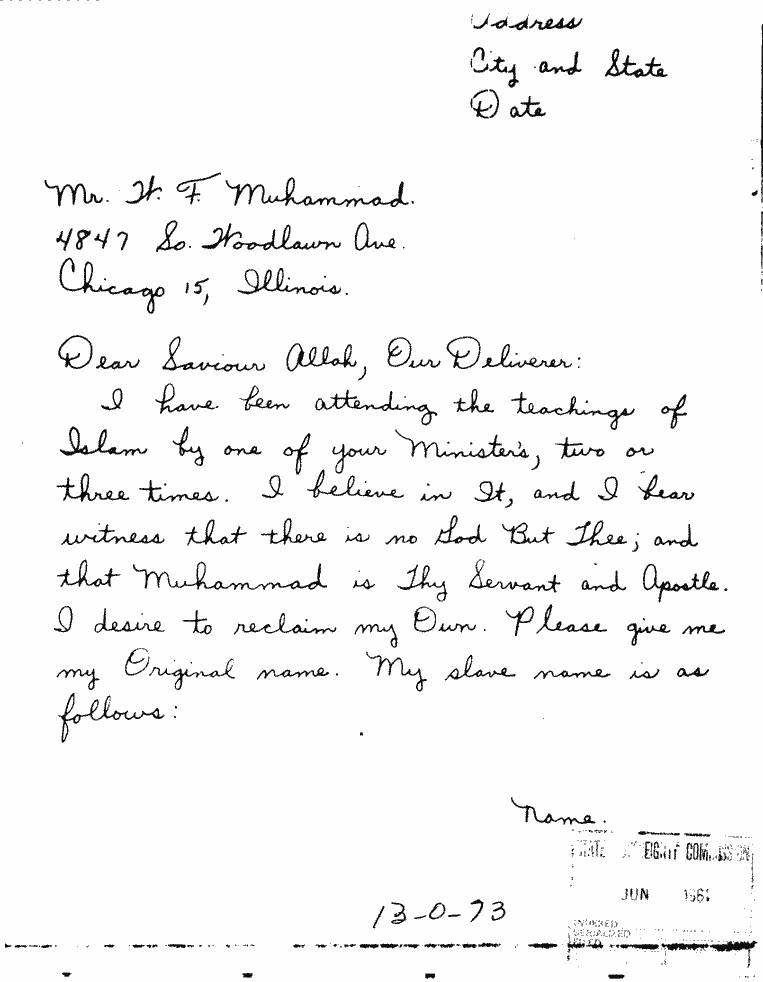 Address
City and State
Date
Mr. W. F. Muhammad.
4847 So. Woodlawn Ave.
Chicago 15, Illinois.
Dear Saviour Allah, Our Deliverer:
I have been attending the teachings of
Islam by one of your Minister's, two or
three times. I believe in It, and I bear
witness that there is no God But Thee; and
that Muhammad is Thy Servant and Apostle.
I desire to reclaim my Own. Please give me
my Original name. My slave name is as
follows:
Name.
JUN
13-0-73
INDEXED
SERIALIZED